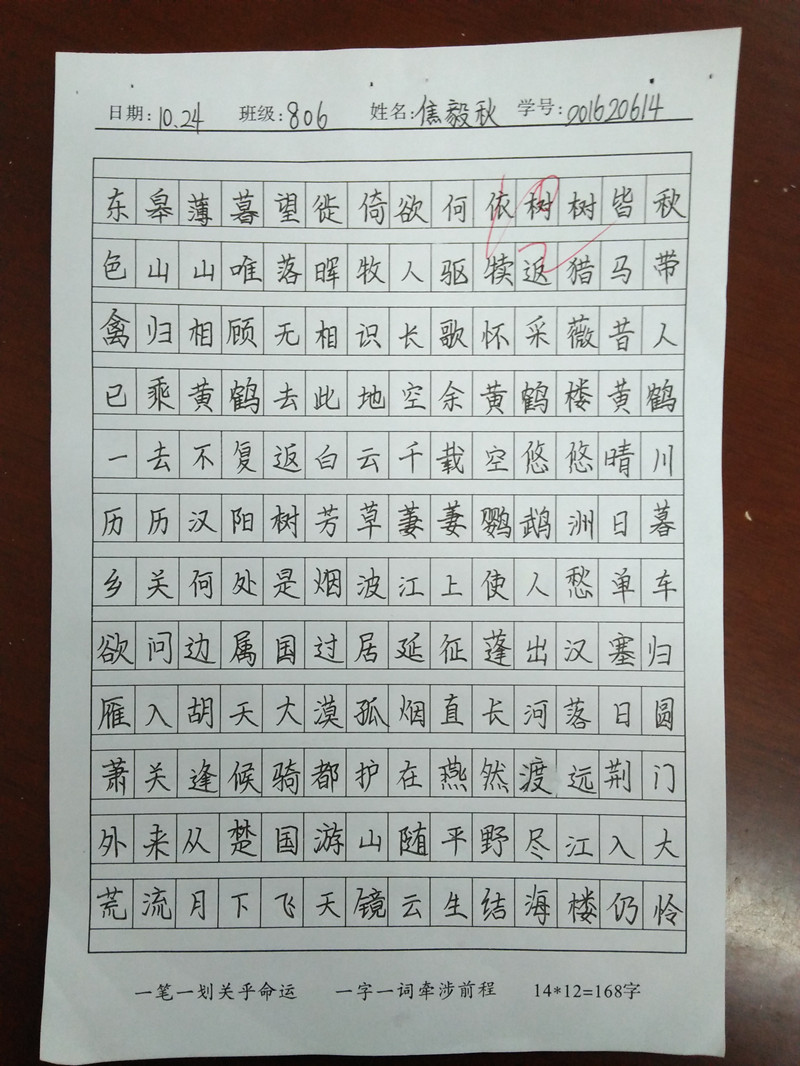 日期: 10.24 班级: 806 姓名: 焦毅秋 学号: 201620614
东皋薄暮望徙倚欲何依树树皆秋
色山山唯落晖牧人驱犊返猎马带
禽归相顾无相识长歌怀采薇昔人
已乘黄鹤去此地空余黄鹤楼黄鹤
一去不复返白云千载空悠悠晴川
历历汉阳树芳草萋萋鹦鹉洲日暮
乡关何处是烟波江上使人愁单车
欲问边属国过居延征蓬出汉塞归
雁入胡天大漠孤烟直长河落日圆
萧关逢候骑都护在燕然渡远荆门
外来从楚国游山随平野尽江入大
荒流月下飞天镜云生结海楼仍怜
一笔一划关乎命运 一字一词牵涉前程 14*12=168字